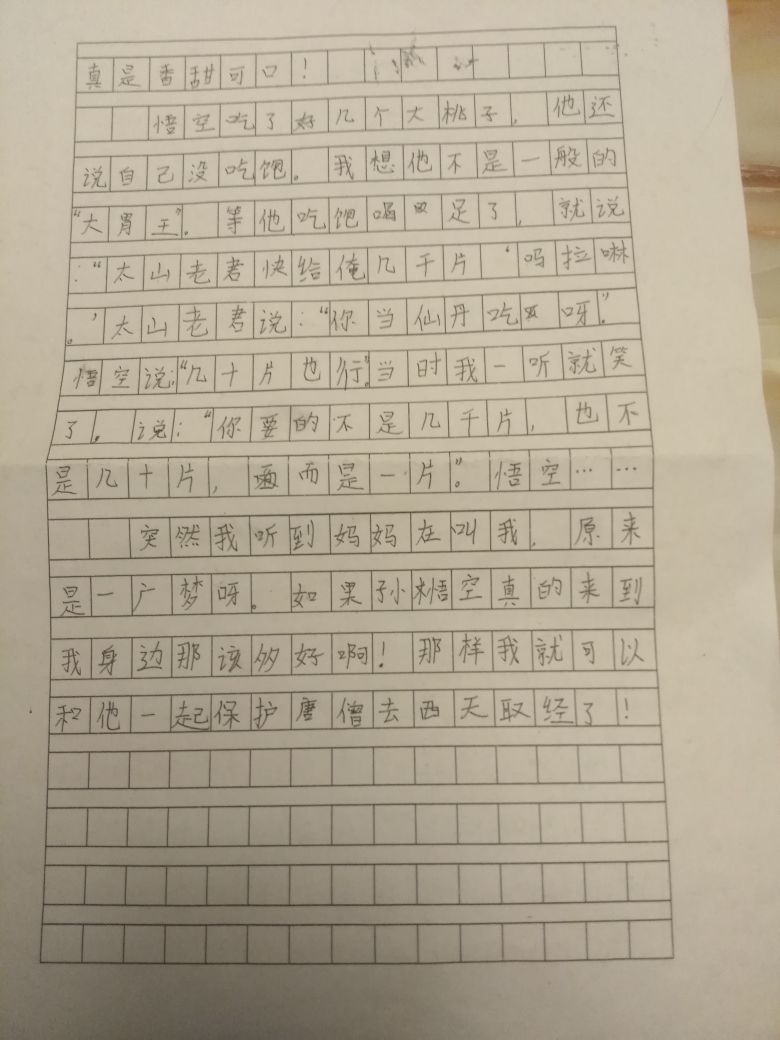 真是香甜可口！
悟空吃了好几个大桃子，他还
说自己没吃饱。我想他不是一般的
“大胃王”。等他吃饱喝足了，就说
：“太山老君快给俺几千片‘吗拉啉
。’太山老君说：“你当仙丹吃呀。”
悟空说：“几十片也行”。当时我一听就笑
了。说：“你要的不是几千片，也不
是几十片，而是一片”。悟空……
突然我听到妈妈在叫我，原来
是一广梦呀。如果孙小悟空真的来到
我身边那该多好啊！那样我就可以
和他一起保护唐僧去西天取经了！